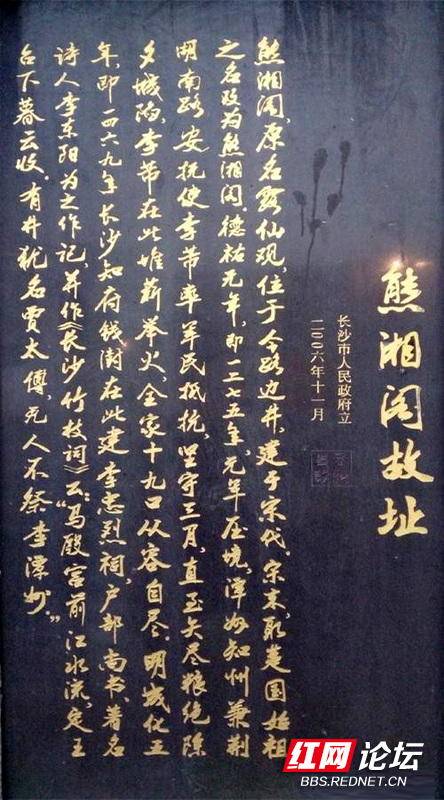 熊湘阁故址
长沙市人民政府立
二〇〇六年十一月
熊湘阁,原名露仙观,位于今路边井,建于宋代。宋末,取楚国始祖
之名改为熊湘阁。德祐元年,即一二七五年,元军压境,潭州知州兼荆
湖南路安抚使李芾率军民抵抗,坚守三月,直至矢尽粮绝除
夕城陷,李芾在此堆薪举火,全家十九口从容自尽。明成化五
年,即一四六九年长沙知府钱澍在此建李忠烈祠,户部尚书、著名
诗人李东阳为之作记,并作《长沙竹枝词》云:“马殷宫前江水流,定王
台下暮云收。有井犹名贾太傅,无人不祭李潭州。”
红网论坛
BBS.REDNET.CN